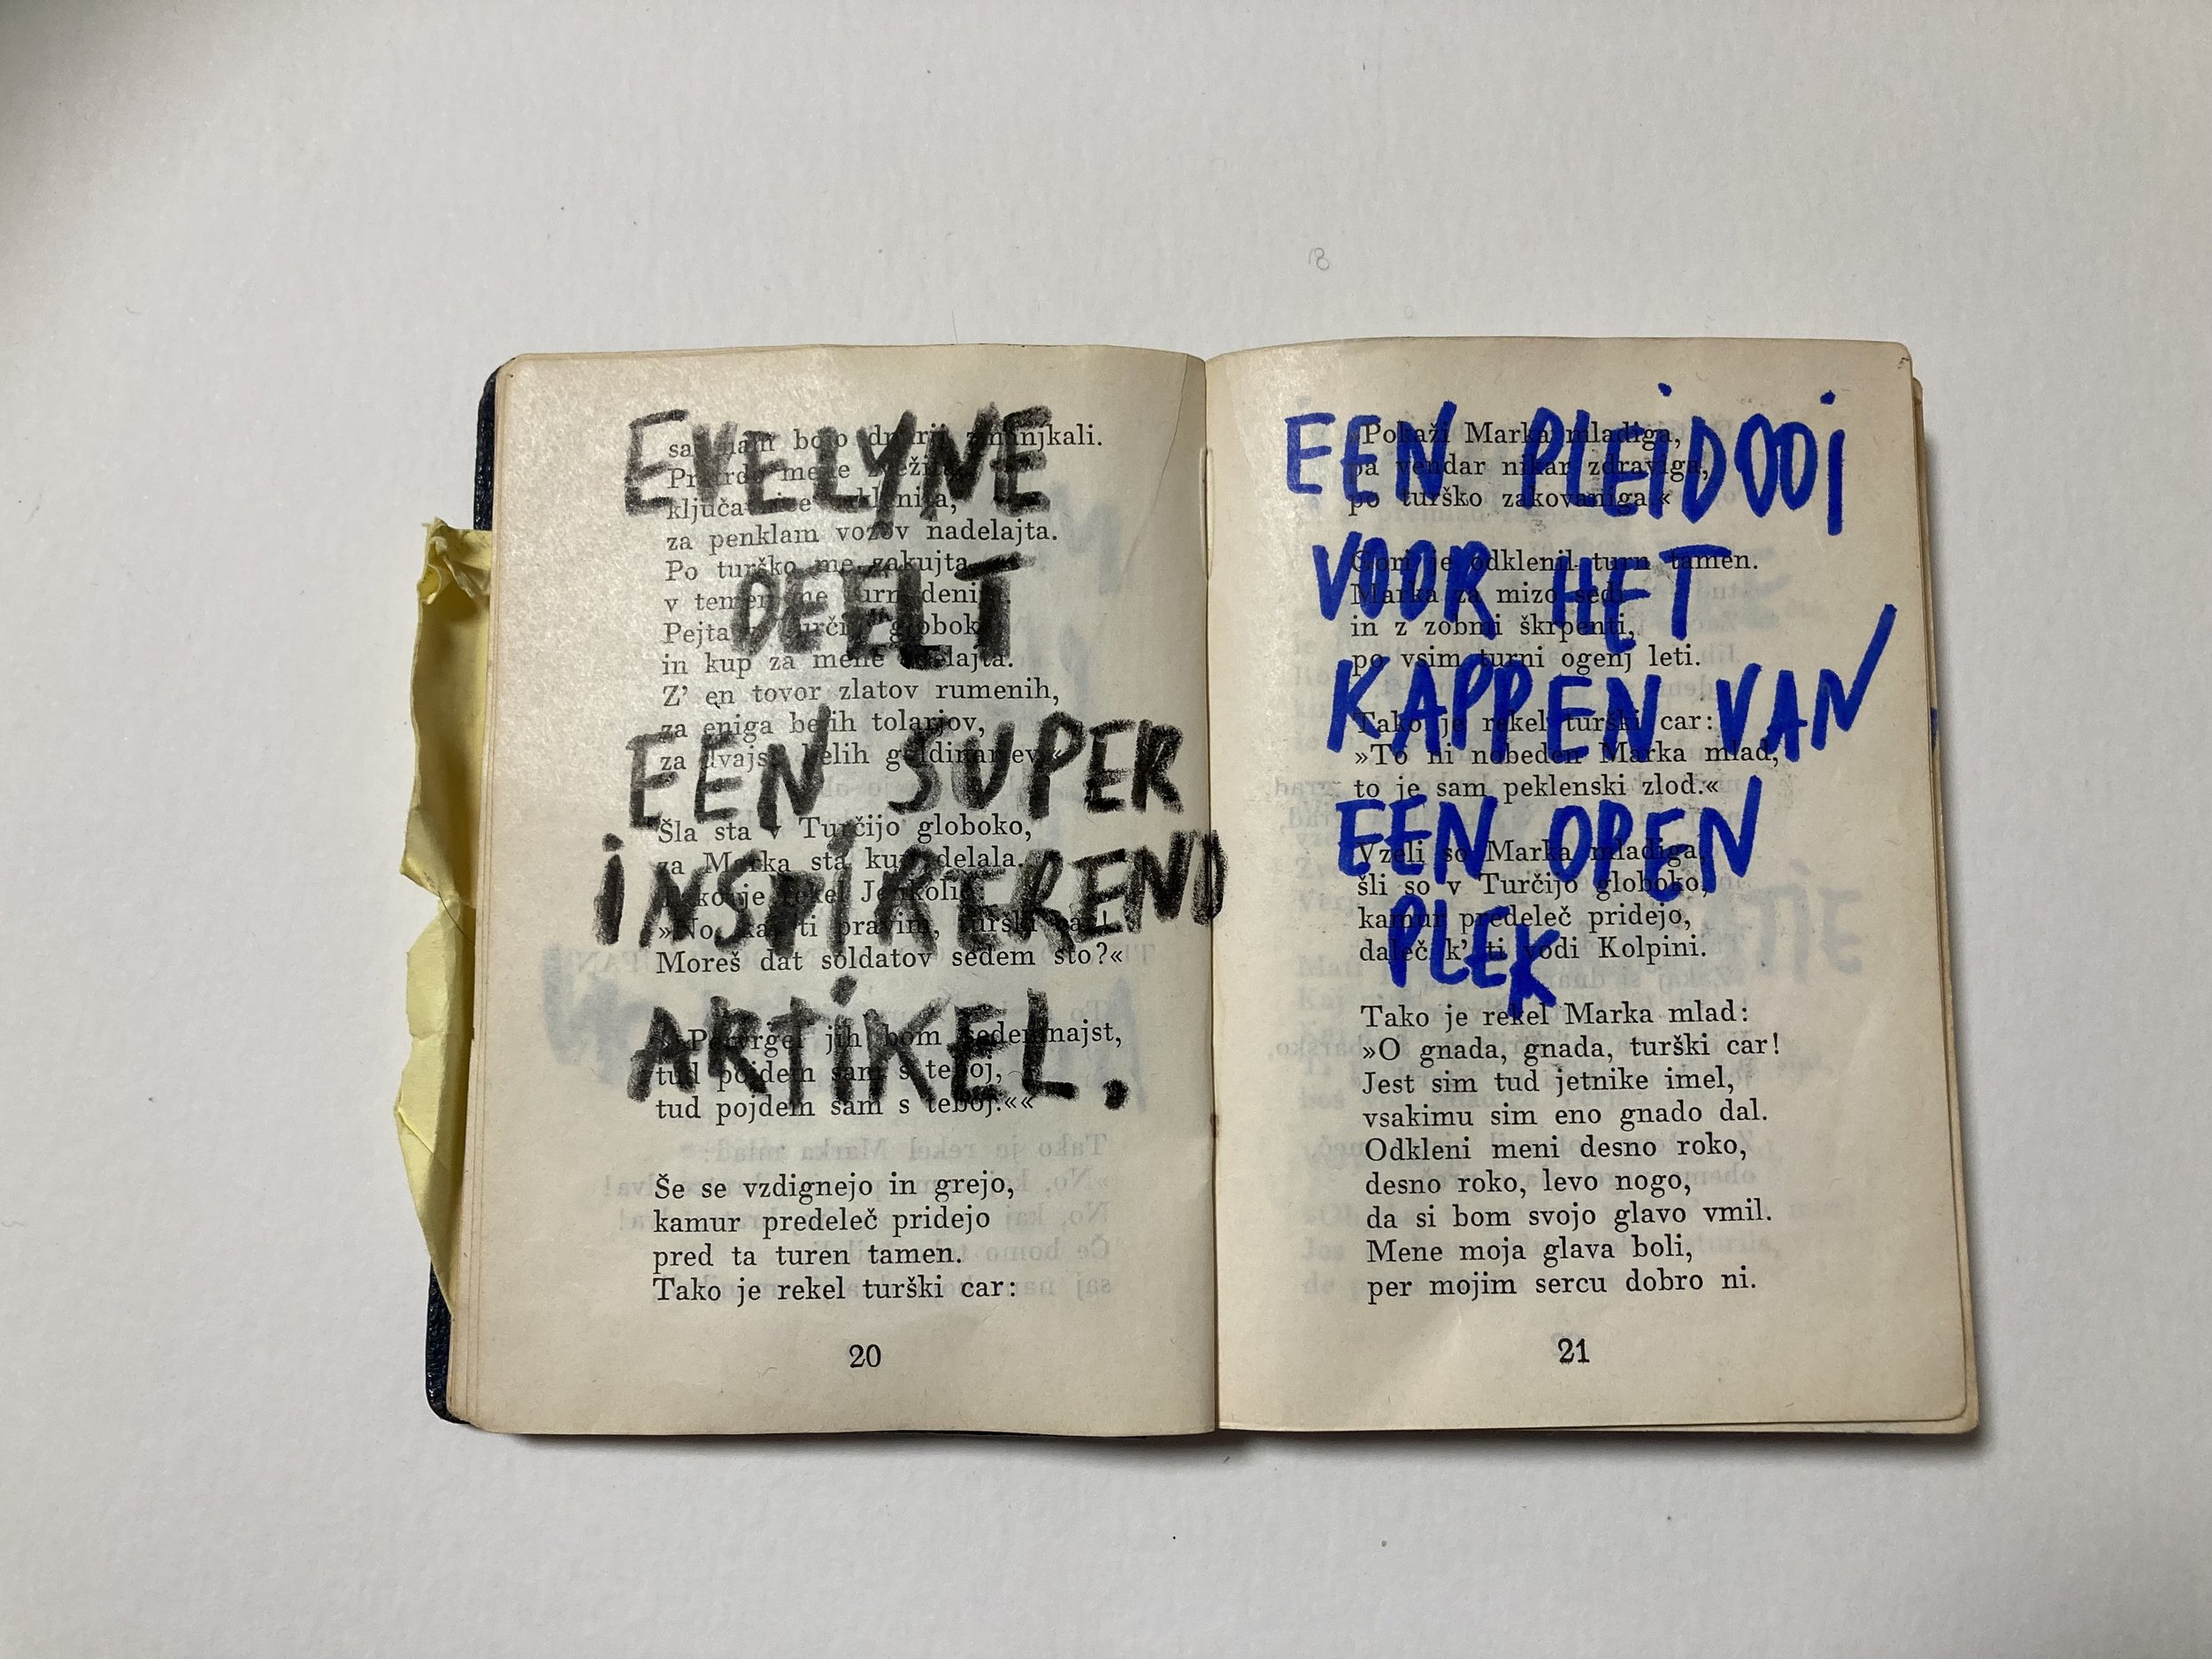 EVELYNE
DEELT
EEN SUPER
INSPIREREND
ARTIKEL.
bojo
za penklam vozov nadelajta.
Po turško me zakujta
Pejta
in kup za mene
Z' en tovor zlatov rumenih,
za eniga belih tolarjov,
Šla sta v Turčijo globoko,
za Marka sta kup delala.
Moreš dat soldatov sedem sto?«
jih bom sedemnajst,
tud pojdem sam s teboj,
tud pojdem sam s teboj.««
Še se vzdignejo in grejo,
kamur predeleč pridejo
pred ta turen tamen.
Tako je rekel turški car:
20
EEN PLEIDOOI
VOOR HET
KAPPEN VAN
EEN OPEN
PLEK
»Pokaži Marka mladiga,
pa vendar nikar zdraviga,
po turško zakovaniga.«
Gori je odklenil turn tamen.
Marka za mizo sedi
in z zobmi škrpenti,
po vsim turni ogenj leti.
Tako je rekel turški car:
»To ni nobeden Marka mlad,
to je sam peklenski zlod.«
Vzeli so Marka mladiga,
šli so v Turčijo globoko,
kamur predeleč pridejo,
daleč k' ti vodi Kolpini.
Tako je rekel Marka mlad:
»O gnada, gnada, turški car!
Jest sim tud jetnike imel,
vsakimu sim eno gnado dal.
Odkleni meni desno roko,
desno roko, levo nogo,
da si bom svojo glavo vmil.
Mene moja glava boli,
per mojim sercu dobro ni.
21